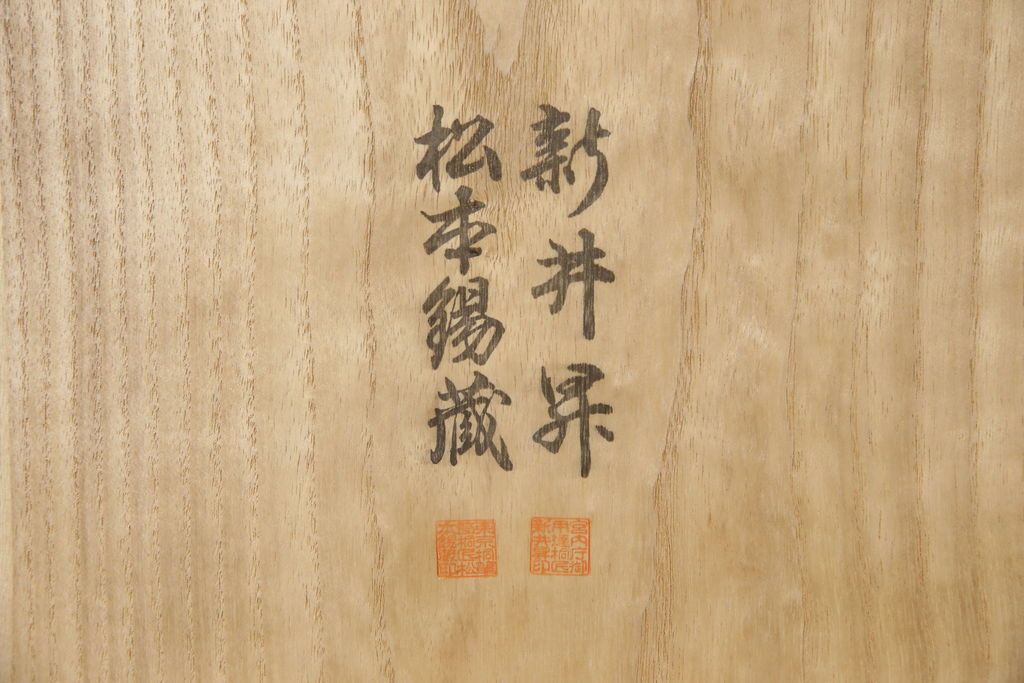 新井昇
松本錫蔵
宮内庁御
用達桐匠
新井昇印